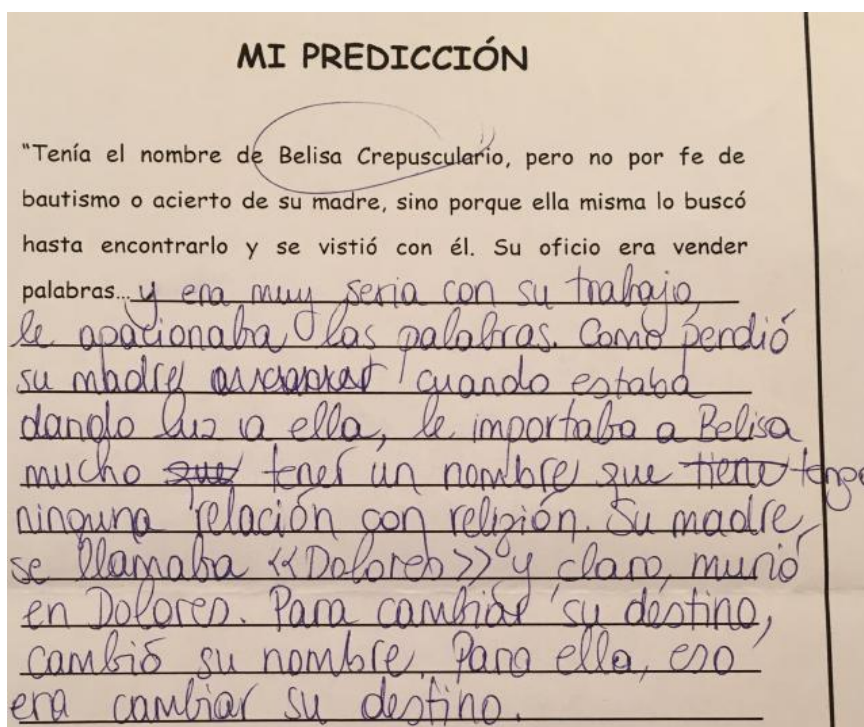 MI PREDICCIÓN
"Tenía el nombre de Belisa Crepusculario, pero no por fe de
bautismo o acierto de su madre, sino porque ella misma lo buscó
hasta encontrarlo y se vistió con él. Su oficio era vender
palabras... y era muy seria con su trabajo
le apacionaba las palabras. Como perdió
su madre quando estaba
dando luz a ella, le importaba a Belisa
mucho que tener un nombre que tiene tenga
ninguna relación con religión. Su madre,
se llamaba <<Dolores>> y claro, murió
en Dolores. Para cambiar su destino,
cambió su nombre. Para ella, eso
era cambiar su destino.